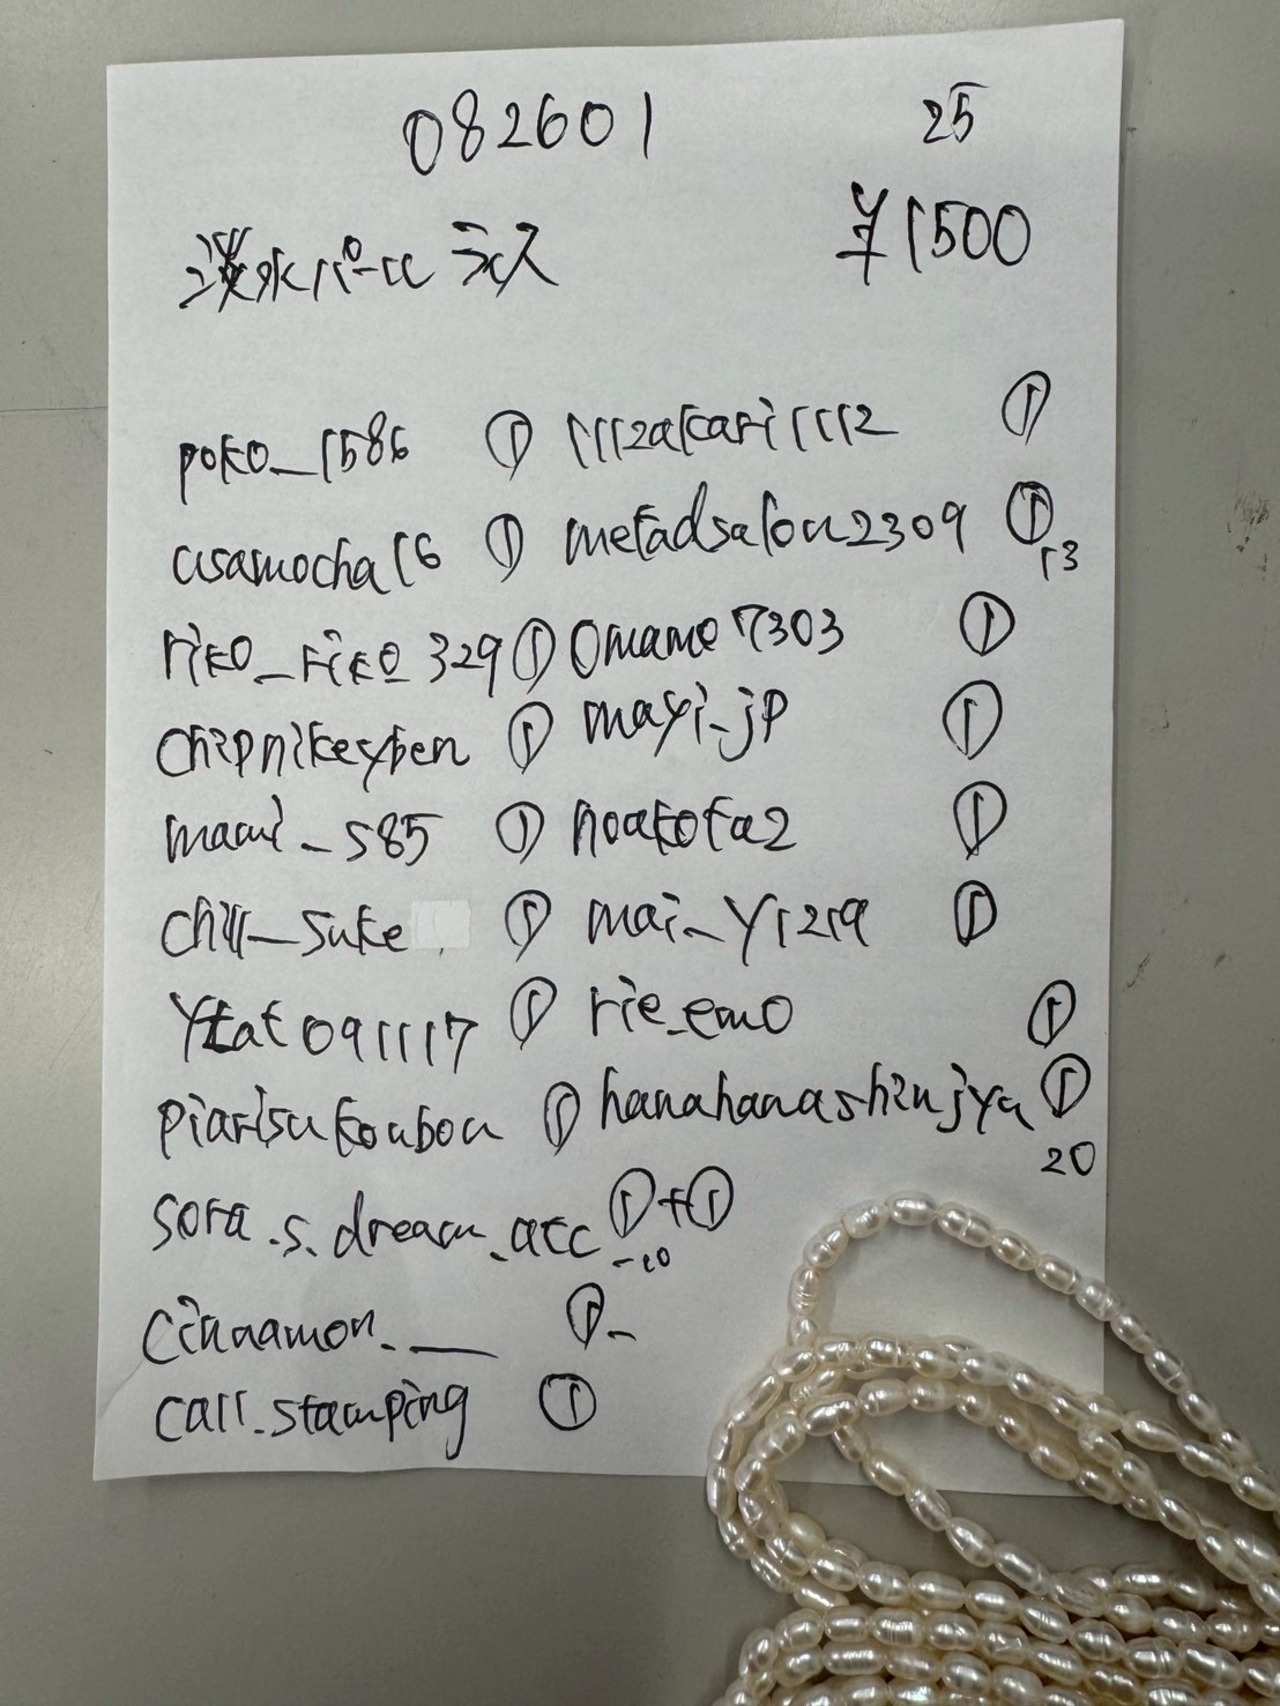 082601 25
淡水パール ライス ¥1500
poko_1586 ① 1112akari1112 ①
usamocha16 ① metadsalon2309 ① 13
riko_riko_329 ① omame7303 ①
chipnikeypen ① mayi_jp ①
mami_s85 ① noakota2 ①
chill_suke ① mai_y1219 ①
ytat091117 ① rie_emo ①
piarisukoubou ① hanahanashinjya ① 20
sora.s.dream.acc ①+① -10
cinnamon.__ ①-
call.stamping ①